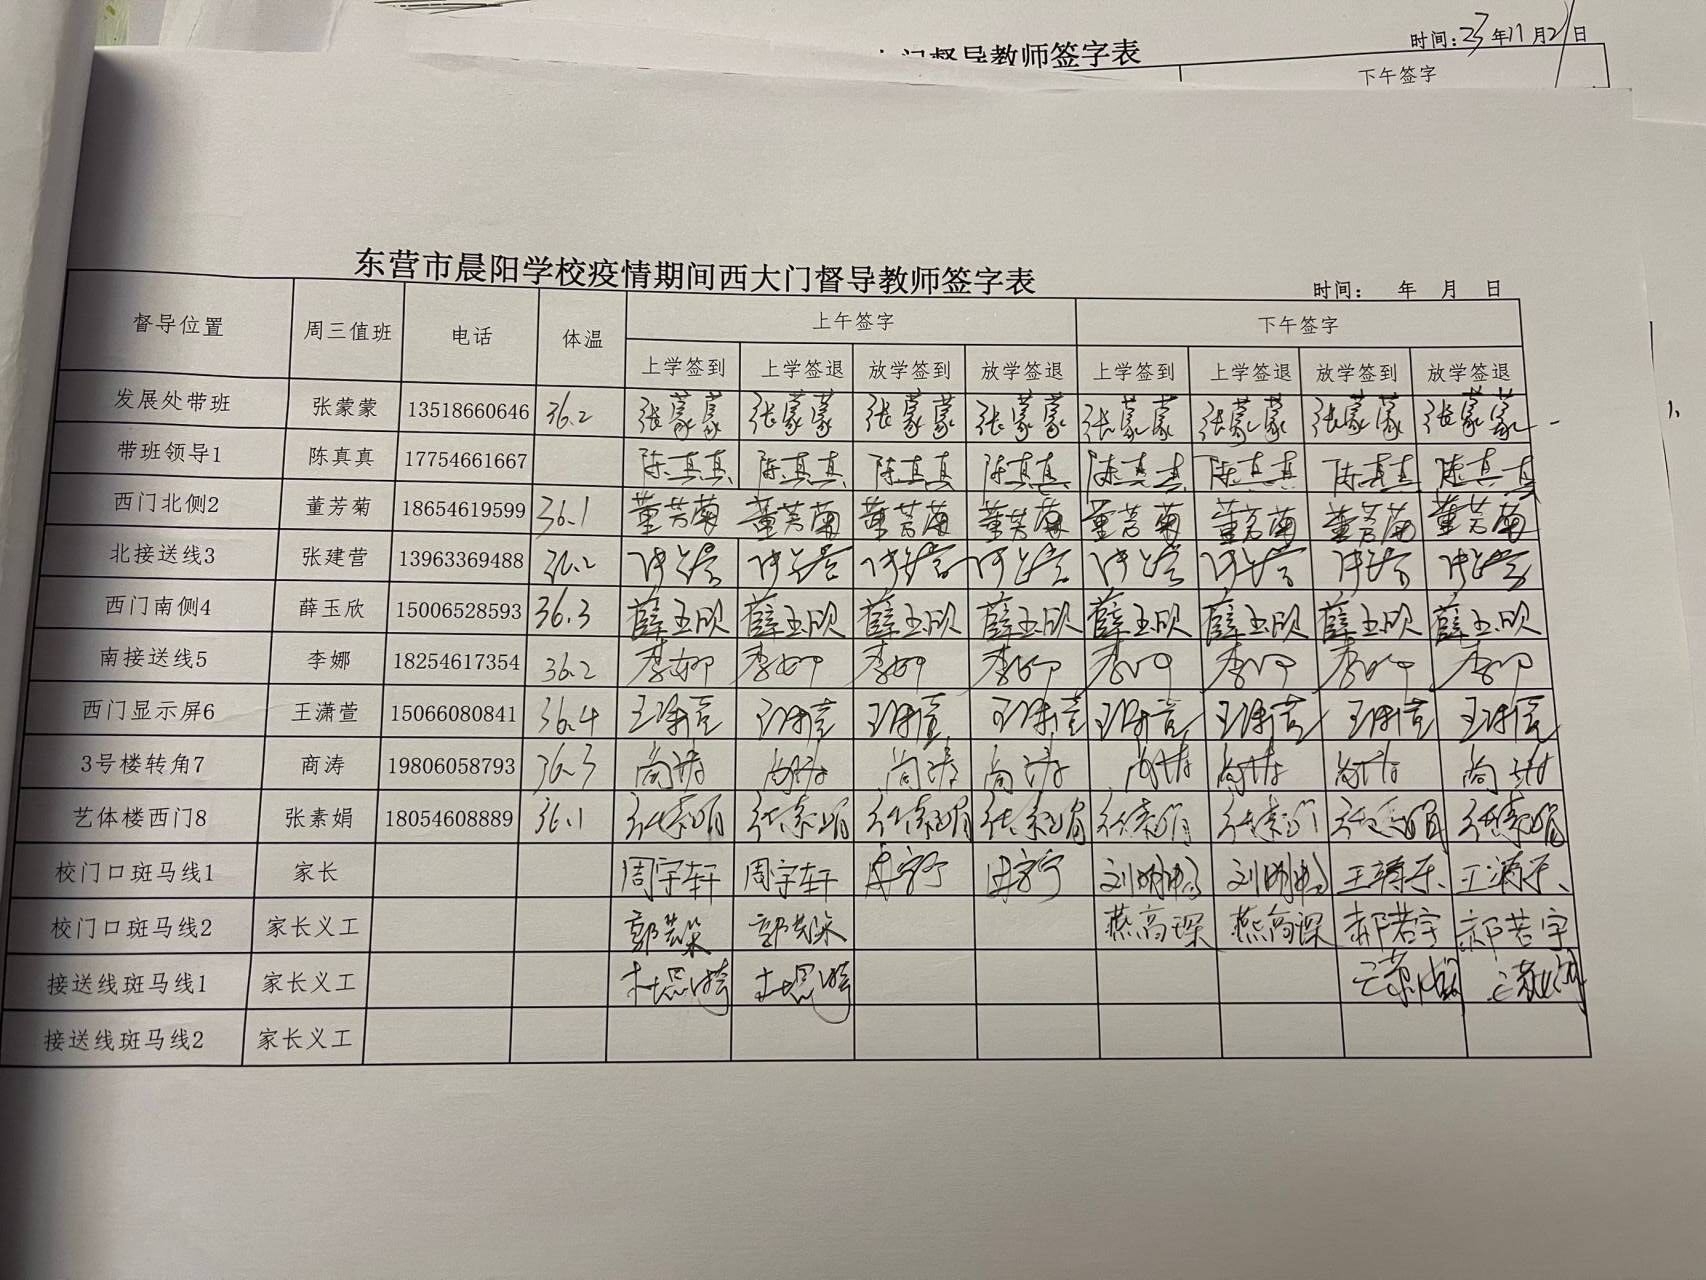 门督导教师签字表
时间:23年11月21日
下午签字
东营市晨阳学校疫情期间西大门督导教师签字表
时间: 年 月 日
督导位置 周三值班 电话 体温 上午签字 下午签字
上学签到 上学签退 放学签到 放学签退 上学签到 上学签退 放学签到 放学签退
发展处带班 张蒙蒙 13518660646 36.2 张蒙蒙 张蒙蒙 张蒙蒙 张蒙蒙 张蒙蒙 张蒙蒙 张蒙蒙 张蒙蒙
带班领导1 陈真真 17754661667 陈真真 陈真真 陈真真 陈真真 陈真真 陈真真 陈真真 陈真真
西门北侧2 董芳菊 18654619599 36.1 董芳菊 董芳菊 董芳菊 董芳菊 董芳菊 董芳菊 董芳菊 董芳菊
北接送线3 张建营 13963369488 36.2 张建营 张建营 张建营 张建营 张建营 张建营 张建营 张建营
西门南侧4 薛玉欣 15006528593 36.3 薛玉欣 薛玉欣 薛玉欣 薛玉欣 薛玉欣 薛玉欣 薛玉欣 薛玉欣
南接送线5 李娜 18254617354 36.2 李娜 李娜 李娜 李娜 李娜 李娜 李娜 李娜
西门显示屏6 王潇萱 15066080841 36.4 王潇萱 王潇萱 王潇萱 王潇萱 王潇萱 王潇萱 王潇萱 王潇萱
3号楼转角7 商涛 19806058793 36.3 商涛 商涛 商涛 商涛 商涛 商涛 商涛 商涛
艺体楼西门8 张素娟 18054608889 36.1 张素娟 张素娟 张素娟 张素娟 张素娟 张素娟 张素娟 张素娟
校门口斑马线1 家长 周宇轩 周宇轩
校门口斑马线2 家长义工 燕高琛 燕高琛 郝若宇 郝若宇
接送线斑马线1 家长义工
接送线斑马线2 家长义工